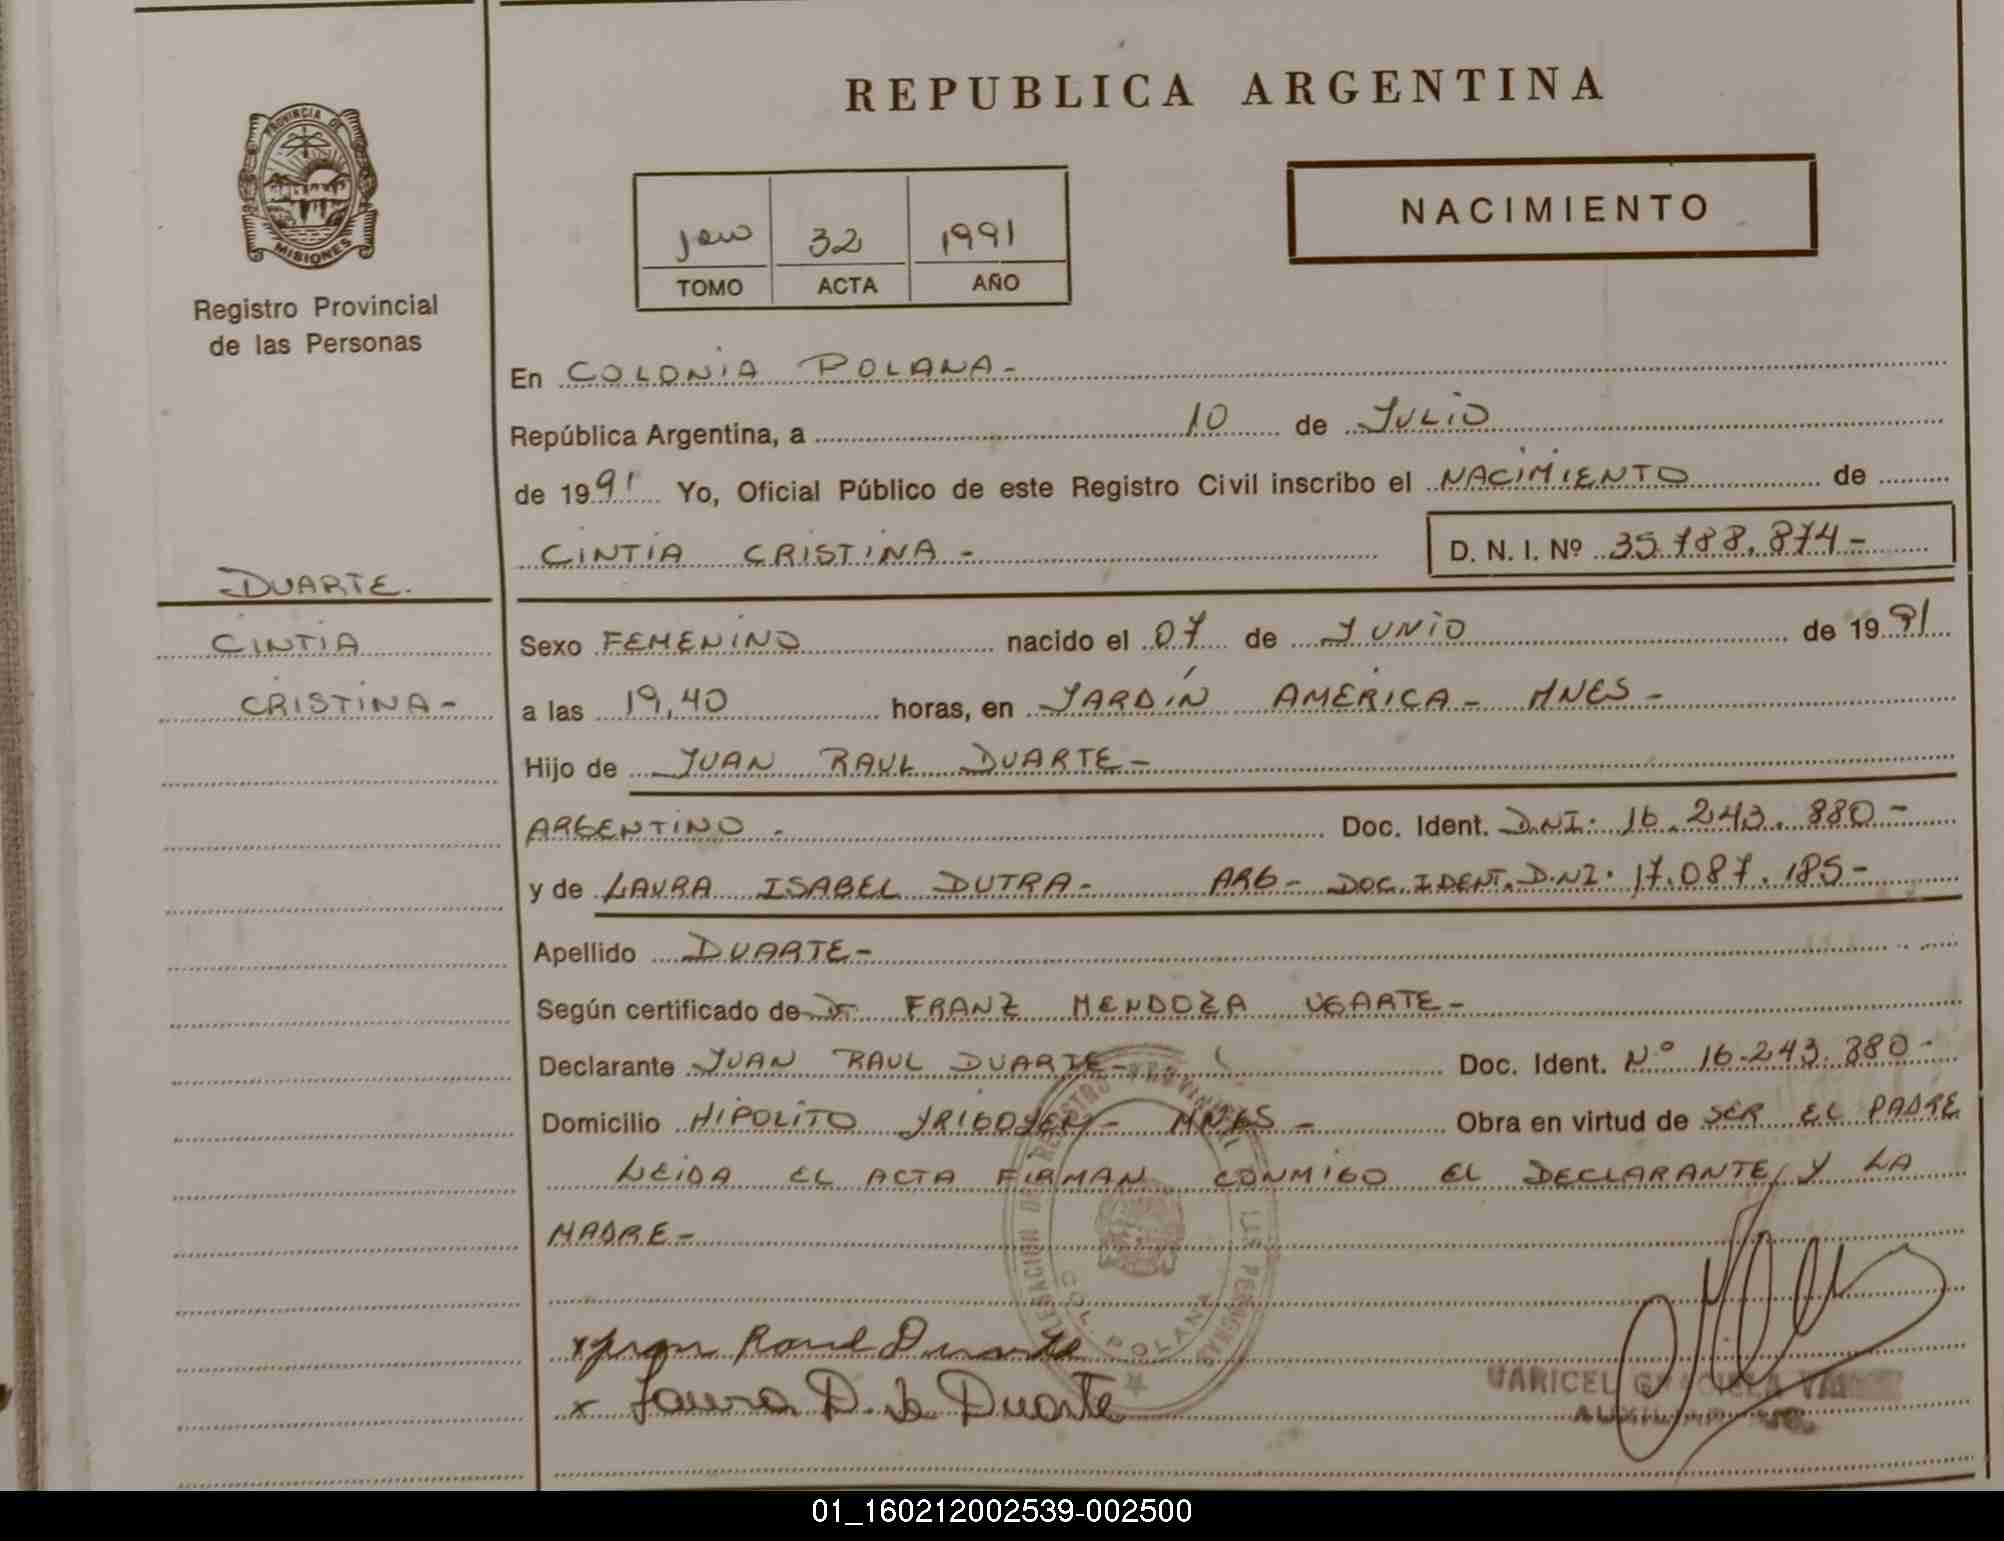 REPUBLICA ARGENTINA
PROVINCIA DE
MISIONES
Registro Provincial
de las Personas
32 1991
TOMO ACTA AÑO
NACIMIENTO
En COLONIA POLANA-
República Argentina, a 10 de JULIO
de 1991 Yo, Oficial Público de este Registro Civil inscribo el NACIMIENTO de
CINTIA CRISTINA- D. N. I. Nº 35.788.874-
DUARTE.
CINTIA
CRISTINA-
Sexo FEMENINO nacido el 07 de JUNIO de 1991
a las 19,40 horas, en JARDÍN AMERICA- MNES-
Hijo de JUAN RAUL DUARTE-
ARGENTINO- Doc. Ident. D.NI. 16.243.880-
y de LAURA ISABEL DUTRA- ARG- DOC.IDENT.D.NI. 17.087.185-
Apellido DUARTE-
Según certificado de Dr. FRANZ MENDOZA UGARTE-
Declarante JUAN RAUL DUARTE- Doc. Ident. Nº 16.243.880-
Domicilio HIPOLITO YRIGOYEN- MNES- Obra en virtud de SER EL PADRE
LEIDA EL ACTA FIRMAN CONMIGO EL DECLARANTE, Y LA
MADRE-
COL. POLANA
x Juan Raul Duarte
x Laura D. de Duarte
GRACIELA
01_160212002539-002500